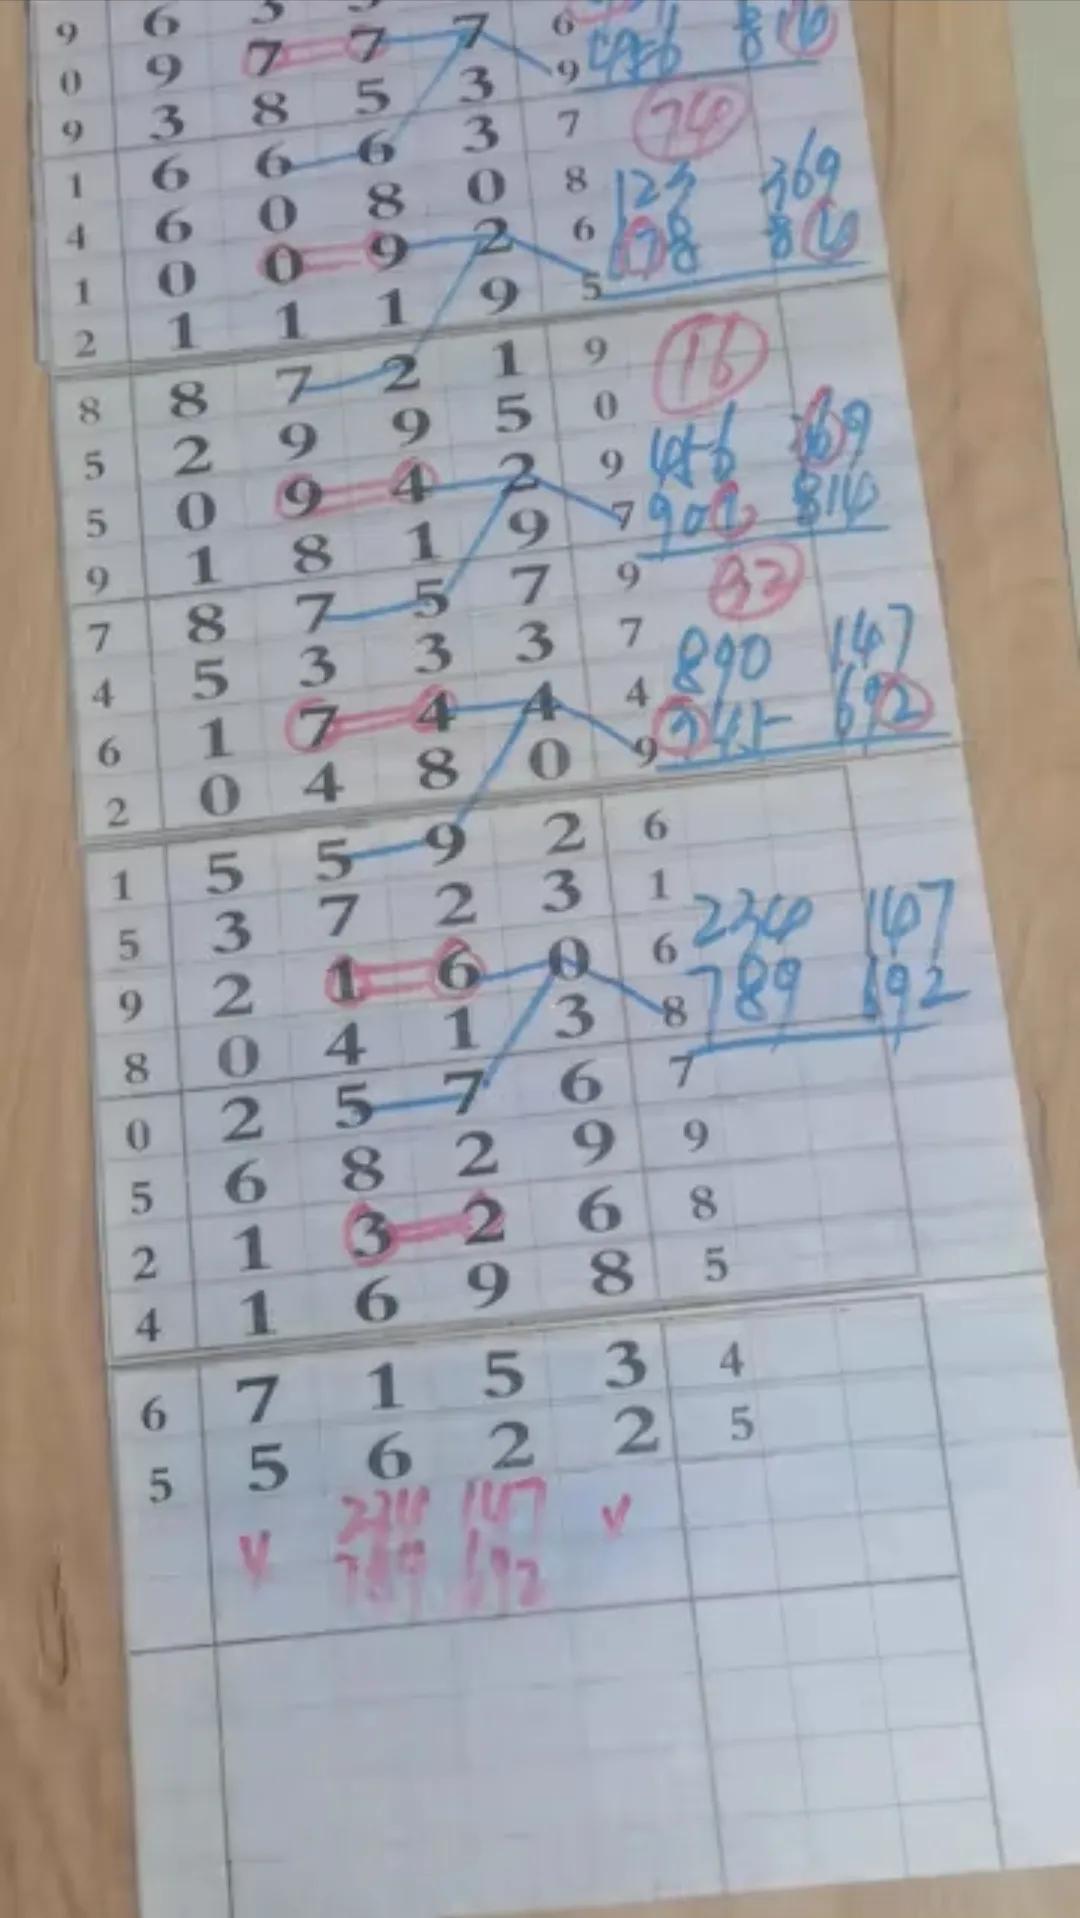 9 6 3
0 9 7 7 7 6 456 816
9 3 8 5 3 9
1 6 6 6 3 7 74
4 6 0 8 0 8 123 369
1 0 0 9 2 6 678 816
2 1 1 1 9 5
8 8 7 2 1 9 16
5 2 9 9 5 0
5 0 9 4 2 9 456 369
9 1 8 1 9 7 901 814
7 8 7 5 7 9 32
4 5 3 3 3 7 890 147
6 1 7 4 4 4 345 692
2 0 4 8 0 9
1 5 5 9 2 6
5 3 7 2 3 1 234 147
9 2 1 6 0 6 789 692
8 0 4 1 3 8
0 2 5 7 6 7
5 6 8 2 9 9
2 1 3 2 6 8
4 1 6 9 8 5
6 7 1 5 3 4
5 5 6 2 2 5
234 147
789 692